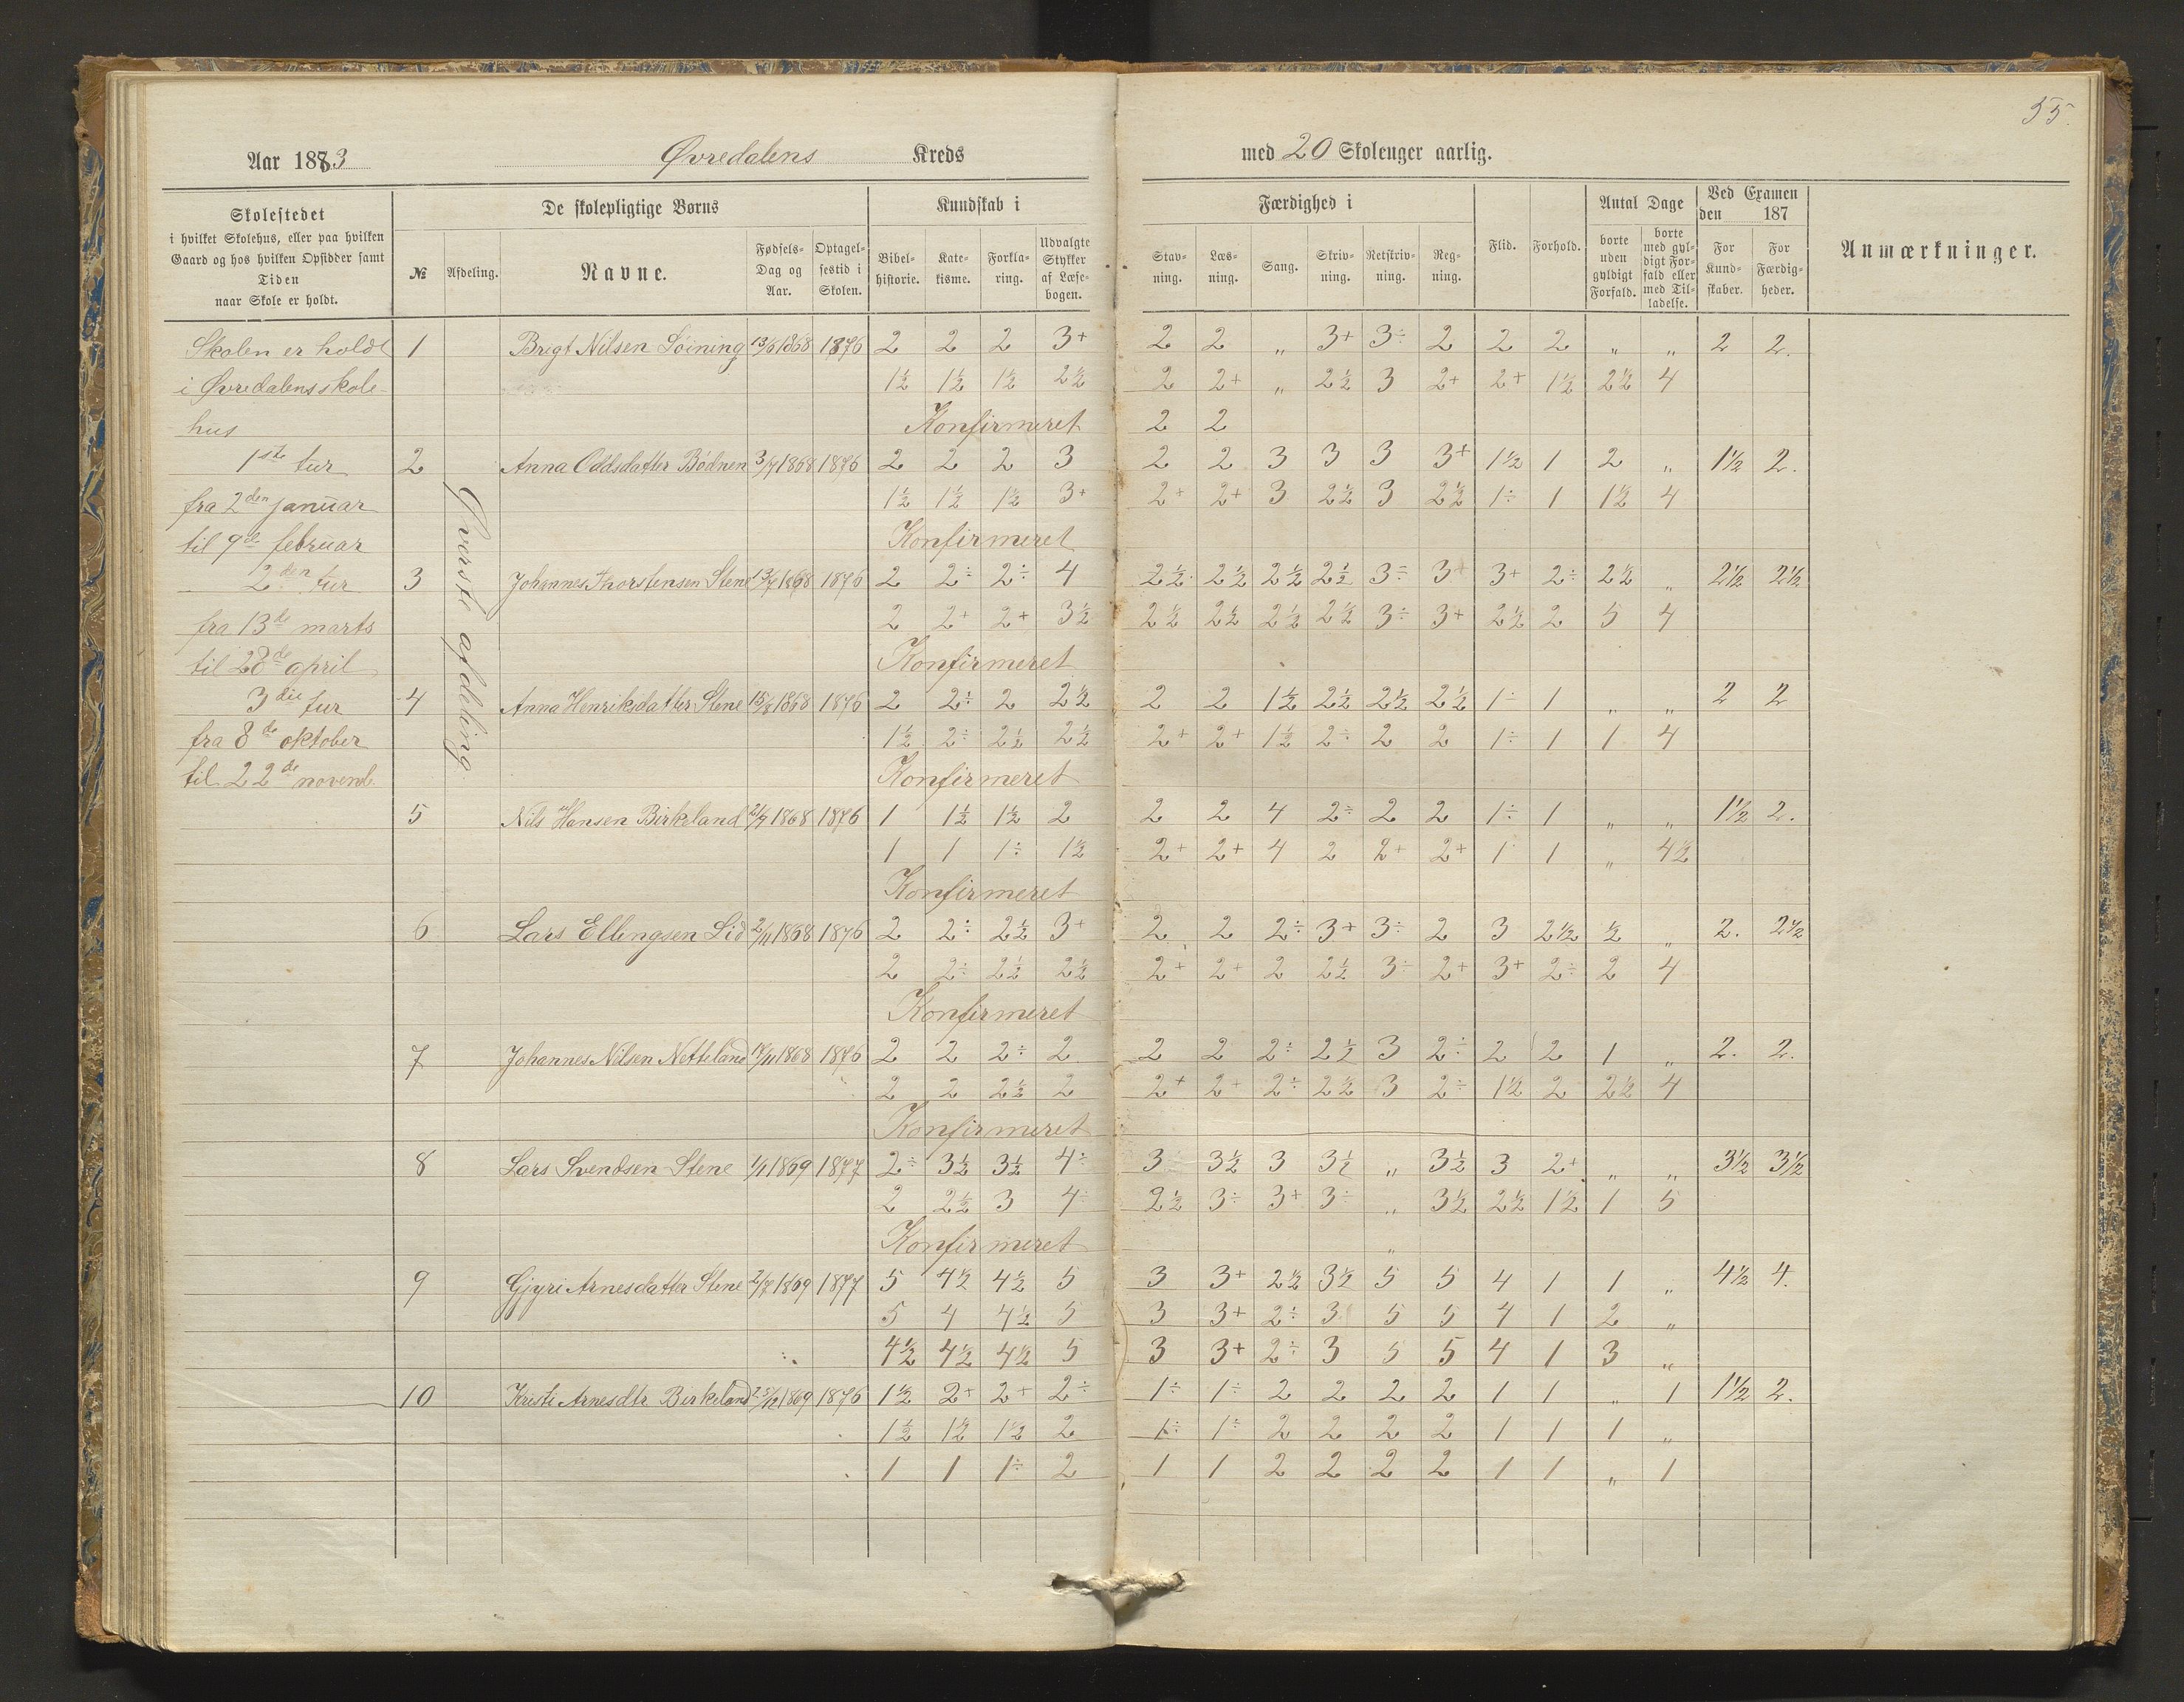 55.
Aar 1883 Øvredalens Kreds med 20 Skoleuger aarlig.
Skolestedet
i hvilket Skolehus, eller paa hvilken
Gaard og hos hvilken Opsidder samt
Tiden
naar Skole er holdt.
De skolepligtige Børns
№ Afdeling. Navne. Fødsels-Dag og Aar. Optagelsestid i Skolen.
Kundskab i
Bibelhistorie. Katekisme. Forklaring. Udvalgte Stykker af Læsebogen.
Færdighed i
Stavning. Læsning. Sang. Skrivning. Retskrivning. Regning.
Flid. Forhold.
Antal Dage
borte uden gyldigt Forfald. borte med gyldigt Forfald eller med Tilladelse.
Ved Examen den 187
For Kundskaber. For Færdigheder.
Anmærkninger.
Skolen er holdt
i Øvredalens skole-
hus
1ste tur
fra 2den januar
til 9de februar
2den tur
fra 13de marts
til 28de april
3die tur
fra 8de oktober
til 22de novemb.
Øverste afdeling.
1 Brigt Nilsen Løining 13/6 1868 1876 2 2 2 3+ 2 2 „ 3+ 3÷ 2 2 2 „ „ 2 2.
1½ 1½ 1½ 2½ 2 2+ „ 2½ 3 2+ 2+ 1½ 2½ 4
Konfirmeret 2 2
2 Anna Oddsdatter Bødnen 3/7 1868 1876 2 2 2 3 2 2 3 3 3 3+ 1½ 1 2 „ 1½ 2.
1½ 1½ 1½ 3+ 2+ 2+ 3 2½ 3 2½ 1÷ 1 1½ 4
Konfirmeret
3 Johannes Thorstensen Stene 13/7 1868 1876 2 2÷ 2÷ 4 2½ 2½ 2½ 2½ 3÷ 3+ 3+ 2÷ 2½ „ 2½ 2½
2 2+ 2+ 3½ 2½ 2½ 2½ 2½ 3÷ 3+ 2½ 2 5 4
Konfirmeret
4 Anna Henriksdatter Stene 15/8 1868 1876 2 2÷ 2 2½ 2 2 1½ 2½ 2½ 2½ 1÷ 1 „ „ 2 2
1½ 2÷ 2½ 2½ 2+ 2+ 1½ 2÷ 2 2 1÷ 1 1 4
Konfirmeret
5 Nils Hansen Birkeland 21/7 1868 1876 1 1½ 1½ 2 2 2 4 2÷ 2 2 1÷ 1 „ „ 1½ 2.
1 1 1÷ 1½ 2+ 2+ 4 2 2+ 2+ 1 1 „ 4½
Konfirmeret
6 Lars Ellingsen Lid 2/11 1868 1876 2 2÷ 2½ 3+ 2 2 2÷ 3+ 3÷ 2 3 2½ ½ „ 2. 2½
2 2÷ 2½ 2½ 2+ 2+ 2 2½ 3÷ 2+ 3+ 2÷ 2 4
Konfirmeret
7 Johannes Nilsen Netteland 17/11 1868 1876 2 2 2÷ 2 2 2 2÷ 2½ 3 2÷ 2 2 1 „ 2. 2.
2 2 2½ 2 2+ 2+ 2÷ 2½ 3 2÷ 1½ 2 2½ 4
Konfirmeret
8 Lars Svendsen Stene 1/1 1869 1877 2÷ 3½ 3½ 4÷ 3 3½ 3 3½ „ 3½ 3 2+ „ „ 3½ 3½
2 2½ 3 4÷ 2½ 3÷ 3+ 3÷ „ 3½ 2½ 1½ 1 5
Konfirmeret „
9 Gjyri Arnesdatter Stene 2/7 1869 1877 5 4½ 4½ 5 3 3+ 2½ 3½ 5 5 4 1 1 „ 4½ 4.
5 4 4½ 5 3 3+ 2÷ 3 5 5 4 1 2 „
4½ 4½ 4½ 5 3 3+ 2÷ 3 5 5 4 1 3 „
10 Kristi Arnesdtr Birkeland 25/12 1869 1876 1½ 2+ 2+ 2÷ 1÷ 1÷ 2 2 2 2 1 1 „ 1 1½ 2.
1½ 1½ 1½ 2 1÷ 1÷ 2 2 2 2 1 1 1 „
1 1 1÷ 2 1 1 2 2 2 2 1 1 „ 1